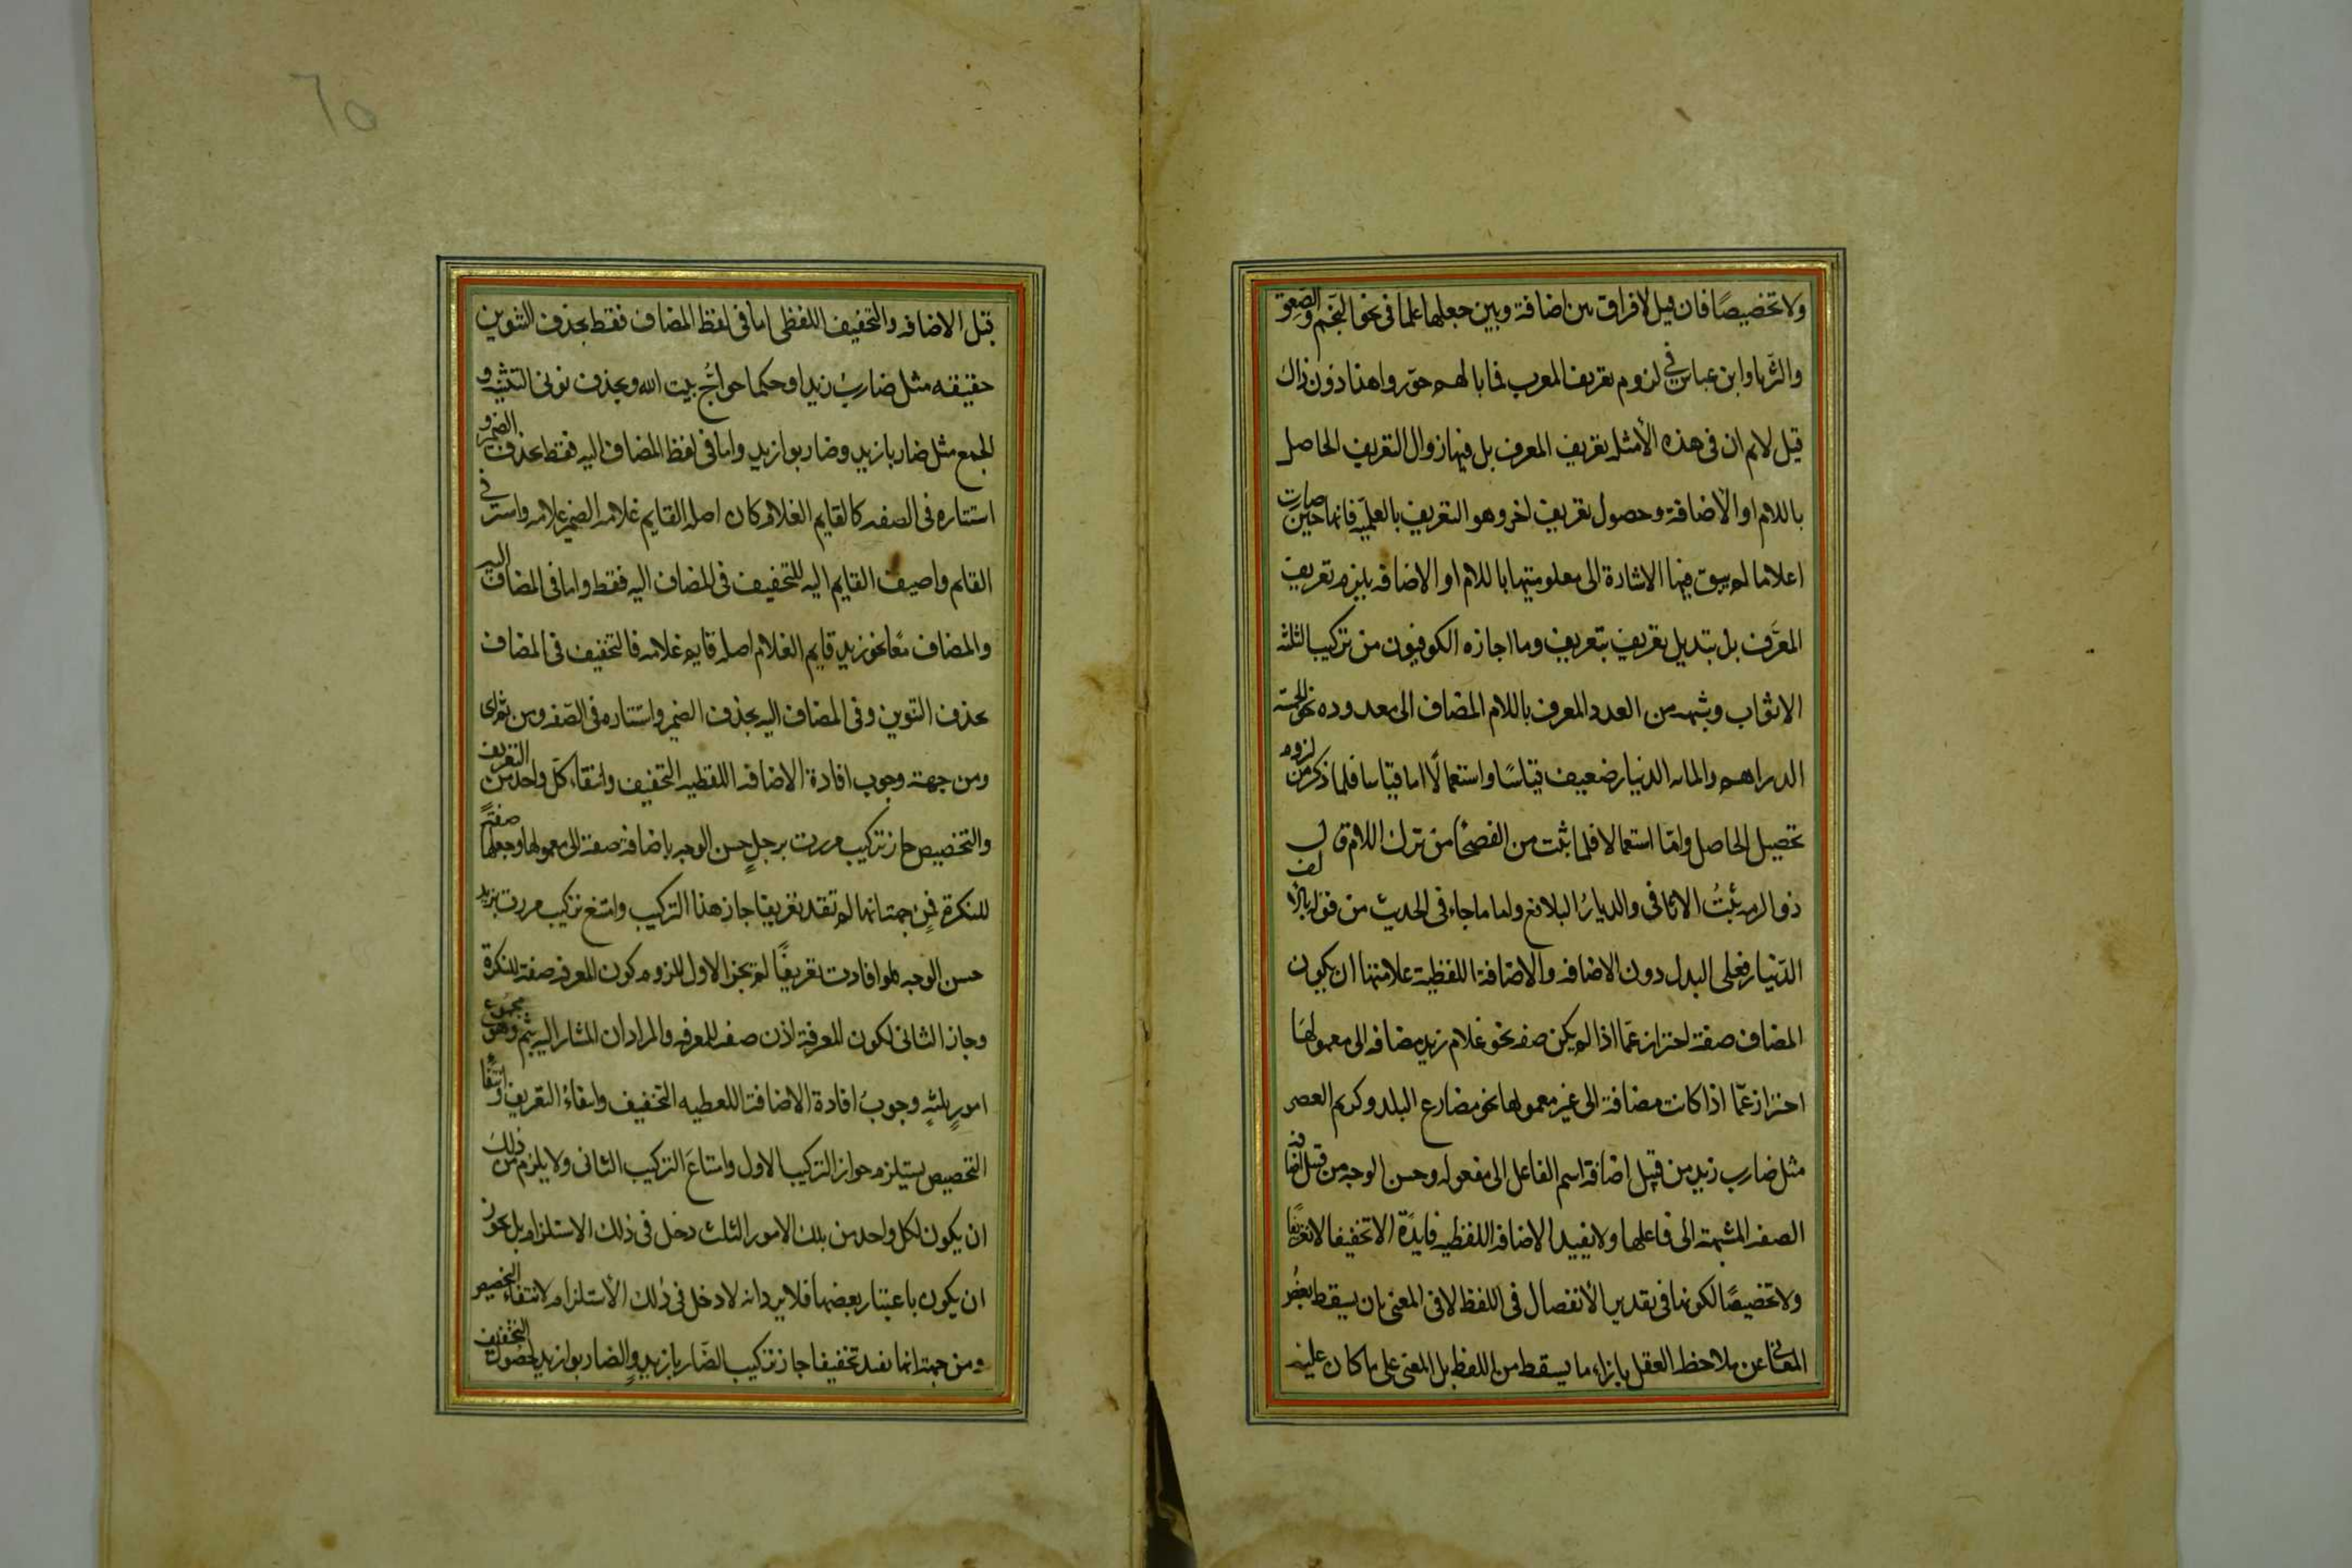 ولا تخصيصًا فان قيل لا فرق بين اضافة وبين جعلها علما فى نحو النجم والصعق
والثريا وابن عباس فى لزوم تعريف المعرب فما بالهم جوزوا هذا دون ذاك
قيل لانم ان فى هذه الأمثلة تعريف المعرف بل فيها زوال التعريف الحاصل
باللام او الاضافة وحصول تعريف اخر وهو التعريف بالعلمية فانها حين صارت
اعلاما لم يبق فيها الاشارة الى معلوميتها باللام او الاضافه فلم يلزم تعريف
المعرَّف بل تبديل تعريف بتعريف وما اجازه الكوفيون من تركيب الثلثة
الاثواب وشبهه من العدد المعرف باللام المضاف الى معدوده نحو الخمسة
الدراهم والمائه الدينار ضعيف قياسًا واستعمالًا اما قياسا فلما ذكر من لزوم
تحصيل الحاصل وامّا استعمالا فلما ثبت من الفصحاء من ترك اللام قال
ذو الرمه ثلثُ الاثافى والديارُ البلاقع واما ما جاء فى الحديث من قوله بالالف
الدينار فعلى البدل دون الاضافه والاضافة اللفظية علامتها ان يكون
المضاف صفة احتراز عمّا اذا لم يكن صفه نحو غلام زيد مضافه الى معمولها
احتراز عمّا اذا كانت مضافة الى غير معمولها نحو مضارع البلد وكريم العصر
مثل ضارب زيد من قبيل اضافة اسم الفاعل الى مفعوله وحسن الوجه من قبيل اضافة
الصفه المشبهة الى فاعلها ولا يفيد الاضافه اللفظيه فايدةً الا تخفيفا لا تعريفًا
ولا تخصيصًا لكونها فى تقدير الأنفصال فى اللفظ لا فى المعنى بان يسقط بعضُ
المعانى عن ملاحظ العقل بازاء ما يسقط من اللفظ بل المعنى على ما كان عليه
قبل الاضافه والتخفيف اللفظى اما فى لفظ المضاف فقط بحذف التنوين
حقيقه مثل ضاربُ زيد او حكما حواجُّ بيت الله وبحذف نونى التثنيه و
الجمع مثل ضاربا زيد وضاربوا زيد واما فى لفظ المضاف اليه فقط بحذف الضمير و
استتاره فى الصفه كالقايم الغلام كان اصله القايم غلامه الضمير غلامه واستتر فى
القايم واضيف القايم اليه للتخفيف فى المضاف اليه فقط واما فى المضاف اليه
والمضاف معًا نحو زيد قايم الغلام اصله قايم غلامه فالتخفيف فى المضاف
بحذف التنوين وفى المضاف اليه بحذف الضمير واستتاره فى الصّفه ومن ثم اى
ومن جهة وجوب افادة الاضافه اللفظيه التخفيف وانتفاء كلّ واحد من التعريف
والتخصيص جاز تركيب مررت برجلٍ حسن الوجه باضافة صفة الى معمولها وجعلها صفةً
للنكرة فمن جهة انها لم تفد تعريفا جاز هذا التركيب وامتنع تركيب مررت بزيد
حسن الوجه فلو افادت تعريفًا لم يجز الاول للزوم كون المعرفه صفة للنكرة
وجاز الثانى لكون المعرفة اذن صفه للمعرفه والمراد ان المشار اليه بثم وهو مجموع
امورٍ ثلثةٍ وجوبُ افادة الاضافة اللفظيه التخفيف وانتفاءُ التعريف وانتفاءُ
التخصيص يستلزم جواز التركيب الاول وامتناعَ التركيب الثانى ولا يلزم من ذلك
ان يكون لكل واحد من تلك الامور الثلث دخل فى ذلك الاستلزام بل يجوز
ان يكون باعتبار بعضها فلا يرد انه لا دخل فى ذلك الأستلزام لانتفاء التخصيص
ومن جهة انها تفيد تخفيفا جاز تركيب الضّاربا زيدٍ والضاربوا زيدٍ لحصول التخفيف